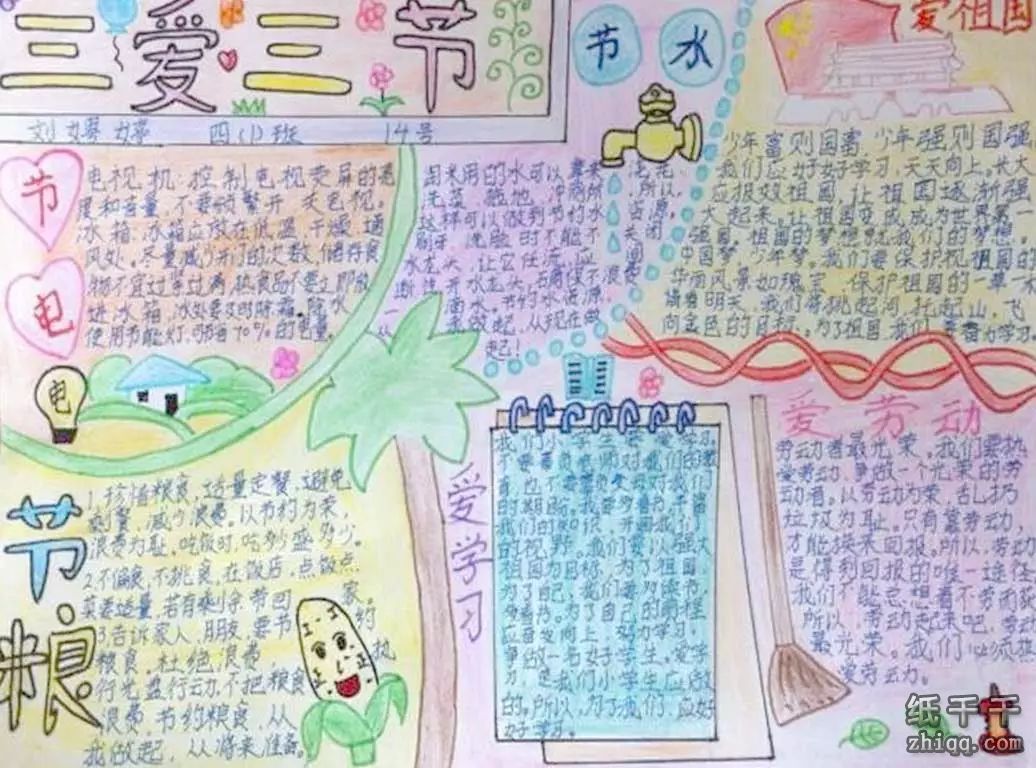 三爱三节
四(1)班 14号
节电
电视机:控制电视荧屏的亮
度和音量,不要频繁开关电视。
冰箱:冰箱应放在低温、干燥、通
风处。尽量减少开门的次数,储存食
物不宜过多过满,热食品不要立即放
进冰箱,冰处要及时除霜、除水
使用节能灯,可省70%的电量。
电
节水
洗菜
拖地
冲厕所
这样可以
刷牙、洗脸时不能
水龙头,让它任流
断
开水龙头
节约水资源
做起,从现在做
起!
爱祖国
少年富则国富,少年强则国强
我们应好好学习,天天向上。长大
应报效祖国,让祖国逐渐强
大起来,让祖国变成成为世界第一
强国。祖国的梦想就我们的梦想。
中国梦,少年梦。我们要保护视祖国的
华丽风景如瑰宝,保护祖国的一草一
明天,我们将挑起河,托起山,飞
向金色的目标。为了祖国,我们要奋力学习
节粮
1.珍惜粮食,适量定餐,避免
剩餐,减少浪费。以节约为荣,
浪费为耻,吃饭时,吃多少盛多少。
2.不偏食,不挑食,在饭店,点饭点
菜要适量,若有剩余带回家。
3.告诉家人、朋友,要节约
粮食,杜绝浪费,执
行光盘行动,不把粮食
浪费,节约粮食,从
我做起,从将来准备。
爱学习
我们小学生要爱学习,
不要辜负老师对我们的教
育,也不要辜负父母对我们
的期盼。
我们的知识,开阔我们
的视野。我们要以强大
祖国为目标,为了祖国,
为了自己,我们要多读书,
为了自己的前程
应奋发向上,努力学习,
争做一名好学生。爱学
习,是我们小学生应做
的。所以,为了我们,应好
好学习。
爱劳动
劳动者最光荣。我们要热
爱劳动,争做一个光荣的劳
动者。以劳动为荣,乱扔
垃圾为耻。只有靠劳动,
才能换来回报。所以,劳动
是得到回报的唯一途径
我们不能总想着不劳而获
所以,劳动起来吧,劳动
最光荣。我们必须热
爱劳动力。
纸千千
zhiqq.com